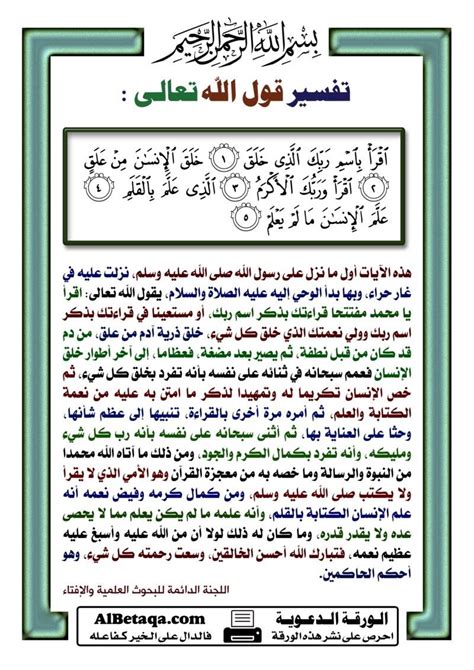 بِسْمِ اللَّهِ الرَّحْمَنِ الرَّحِيمِ
تفسير قول الله تعالى :
اقْرَأْ بِاسْمِ رَبِّكَ الَّذِي خَلَقَ ١ خَلَقَ الْإِنسَانَ مِنْ عَلَقٍ
٢ اقْرَأْ وَرَبُّكَ الْأَكْرَمُ ٣ الَّذِي عَلَّمَ بِالْقَلَمِ ٤
عَلَّمَ الْإِنسَانَ مَا لَمْ يَعْلَمْ ٥
هذه الآيات أول ما نزل على رسول الله صلى الله عليه وسلم، نزلت عليه في
غار حراء، وبها بدأ الوحي إليه عليه الصلاة والسلام، يقول الله تعالى: اقرأ
يا محمد مفتتحا قراءتك بذكر اسم ربك، أو مستعينا في قراءتك بذكر
اسم ربك وولي نعمتك الذي خلق كل شيء، خلق ذرية آدم من علق، من دم
قد كان من قبل نطفة، ثم يصير بعد مضغة، فعظاما، إلى آخر أطوار خلق
الإنسان فعمم سبحانه في ثنائه على نفسه بأنه تفرد بخلق كل شيء، ثم
خص الإنسان تكريما له وتمهيدا لذكر ما امتن به عليه من نعمة
الكتابة والعلم، ثم أمره مرة أخرى بالقراءة، تنبيها إلى عظم شأنها،
وحثا على العناية بها، ثم أثنى سبحانه على نفسه بأنه رب كل شيء
ومليكه، وأنه تفرد بكمال الكرم والجود، ومن ذلك ما أتاه الله محمدا
من النبوة والرسالة وما خصه به من معجزة القرآن وهو الأمي الذي لا يقرأ
ولا يكتب صلى الله عليه وسلم، ومن كمال كرمه وفيض نعمه أنه
علم الإنسان الكتابة بالقلم، وأنه علمه ما لم يكن يعلم مما لا يحصى
عده ولا يقدر قدره، وما كان له ذلك لولا أن من الله عليه وأسبغ عليه
عظيم نعمه، فتبارك الله أحسن الخالقين، وسعت رحمته كل شيء، وهو
أحكم الحاكمين.
اللجنة الدائمة للبحوث العلمية والإفتاء
الورقة الدعوية
احرص على نشر هذه الورقة
AlBetaqa.com
فالدال على الخير كفاعله